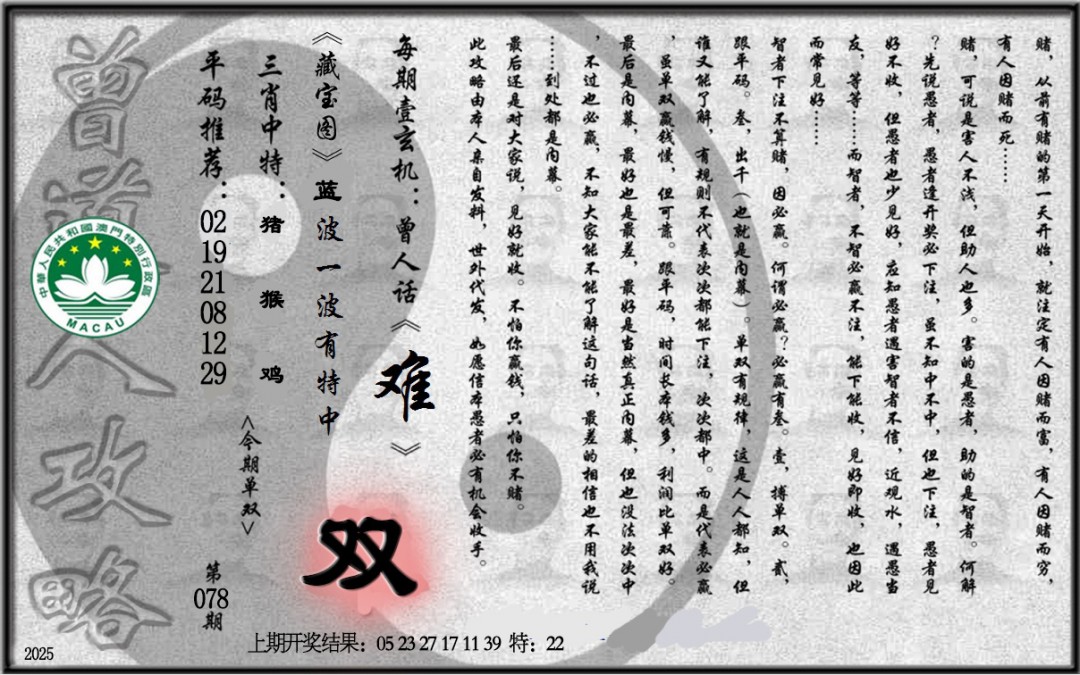 赌，从前有赌的第一天开始，就注定有人因赌而富，有人因赌而穷，
有人因赌而死……
赌，可说是害人不浅，但助人也多。害的是愚者，助的是智者。何解
？先说愚者，愚者逢开奖必下注，虽不知中不中，但也下注，愚者见
好不收，但愚者也少见好，应知愚者遇害智者不信，近观水，遇愚当
友，等等……而智者，不智必赢不注，能下能收，见好即收，也因此
而常见好……
智者下注不算赌，因必赢。何谓必赢？必赢有叁。壹，搏单双。贰，
跟平码。叁，出千（也就是内幕）。单双有规律，这是人人都知，但
谁又能了解，有规则不代表次次都能下注，次次都中。而是代表必赢
，虽单双赢钱慢，但可靠。跟平码，时间长本钱多，利润比单双好。
最后是内幕，最好也是最差，最好是当然真正内幕，但也没法次次中
，不过也必赢，不知大家能不能了解这句话，最差的相信也不用我说
……到处都是内幕。
最后还是对大家说，见好就收。不怕你赢钱，只怕你不赌。
此攻略由本人亲自发料，世外代发，如愿信本愚者必有机会收手。
每期壹玄机：曾人话《难》
《藏宝图》蓝波一波有特中
三肖中特：猪 猴 鸡
<今期单双>
双
平码推荐：02 19 21 08 12 29
第078期
曾道人攻略
中華人民共和國澳門特別行政區
MACAU
上期开奖结果：05 23 27 17 11 39 特：22
2025